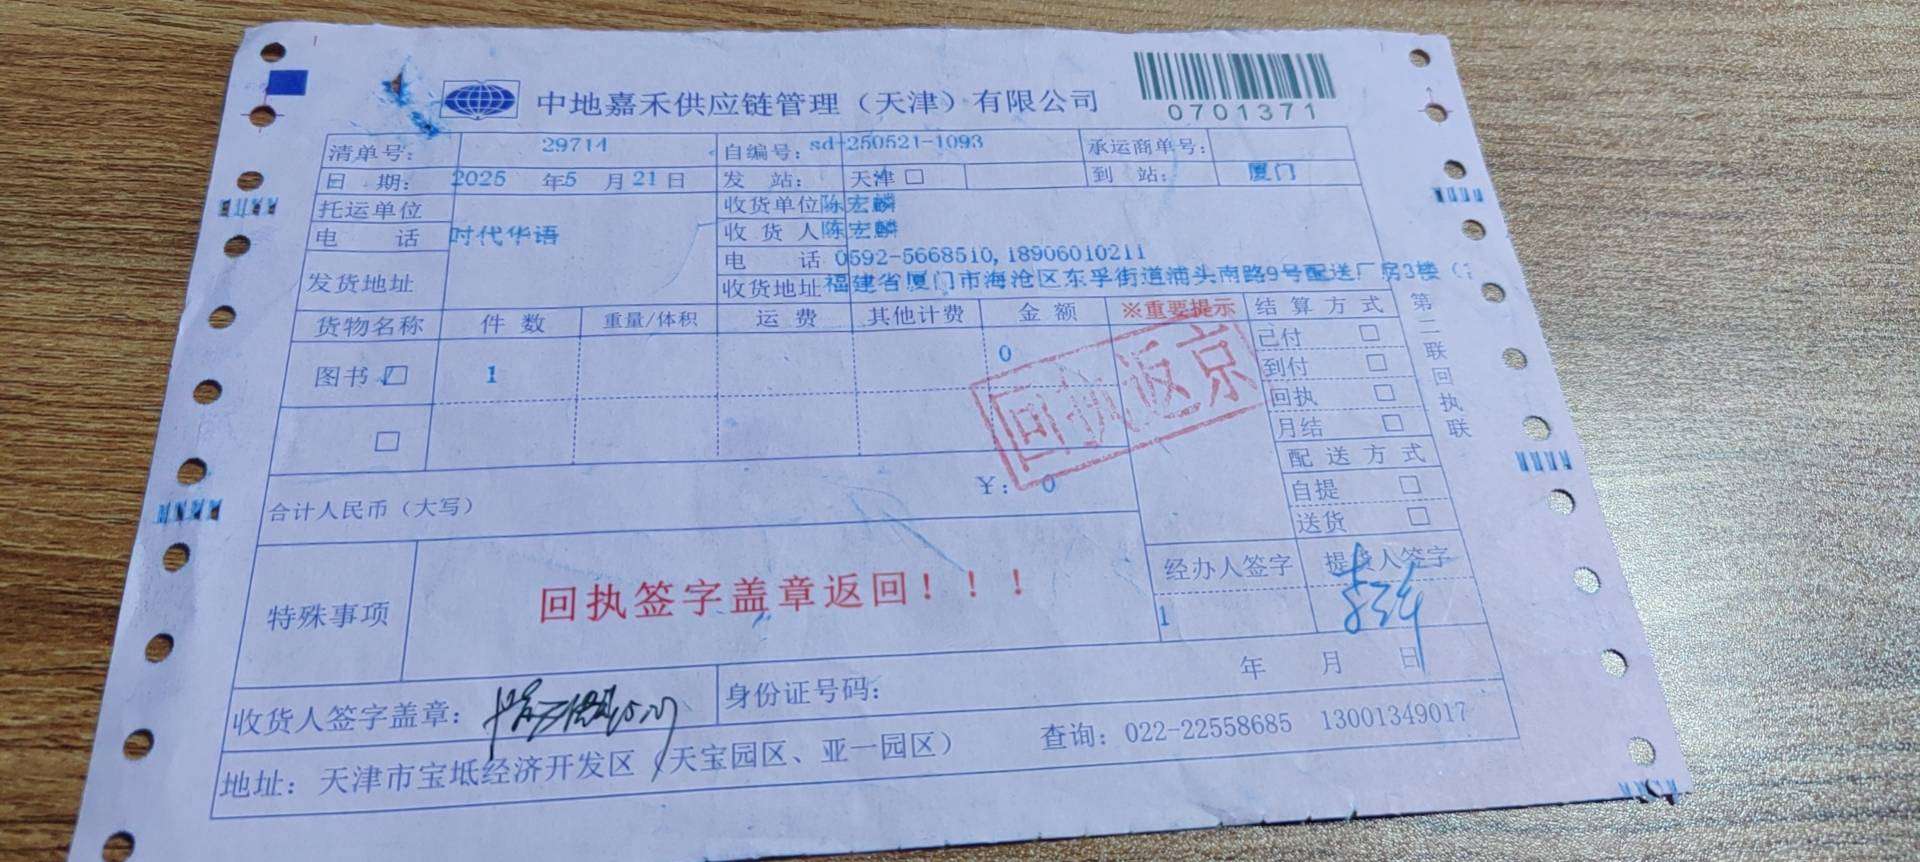 中地嘉禾供应链管理（天津）有限公司
0701371
清单号： 29714 自编号：sd-250521-1093 承运商单号：
日 期： 2025 年5 月21日 发 站： 天津□ 到 站： 厦门
托运单位 收货单位陈宏麟
电 话 时代华语 收 货 人陈宏麟
电 话 0592-5668510,18906010211
发货地址 收货地址福建省厦门市海沧区东孚街道浦头南路9号配送厂房3楼（
货物名称 件 数 重量/体积 运 费 其他计费 金 额 ※重要提示 结 算 方 式
图书☑ 1 0 已付 □
到付 □
回执 □
□ 月结 □
回执返京
配 送 方 式
合计人民币（大写） ¥： 0 自提 □
送货 □
第二联回执联
特殊事项 回执签字盖章返回！！！ 经办人签字 提货人签字
1
年 月 日
收货人签字盖章： 身份证号码：
地址：天津市宝坻经济开发区（天宝园区、亚一园区） 查询：022-22558685 13001349017